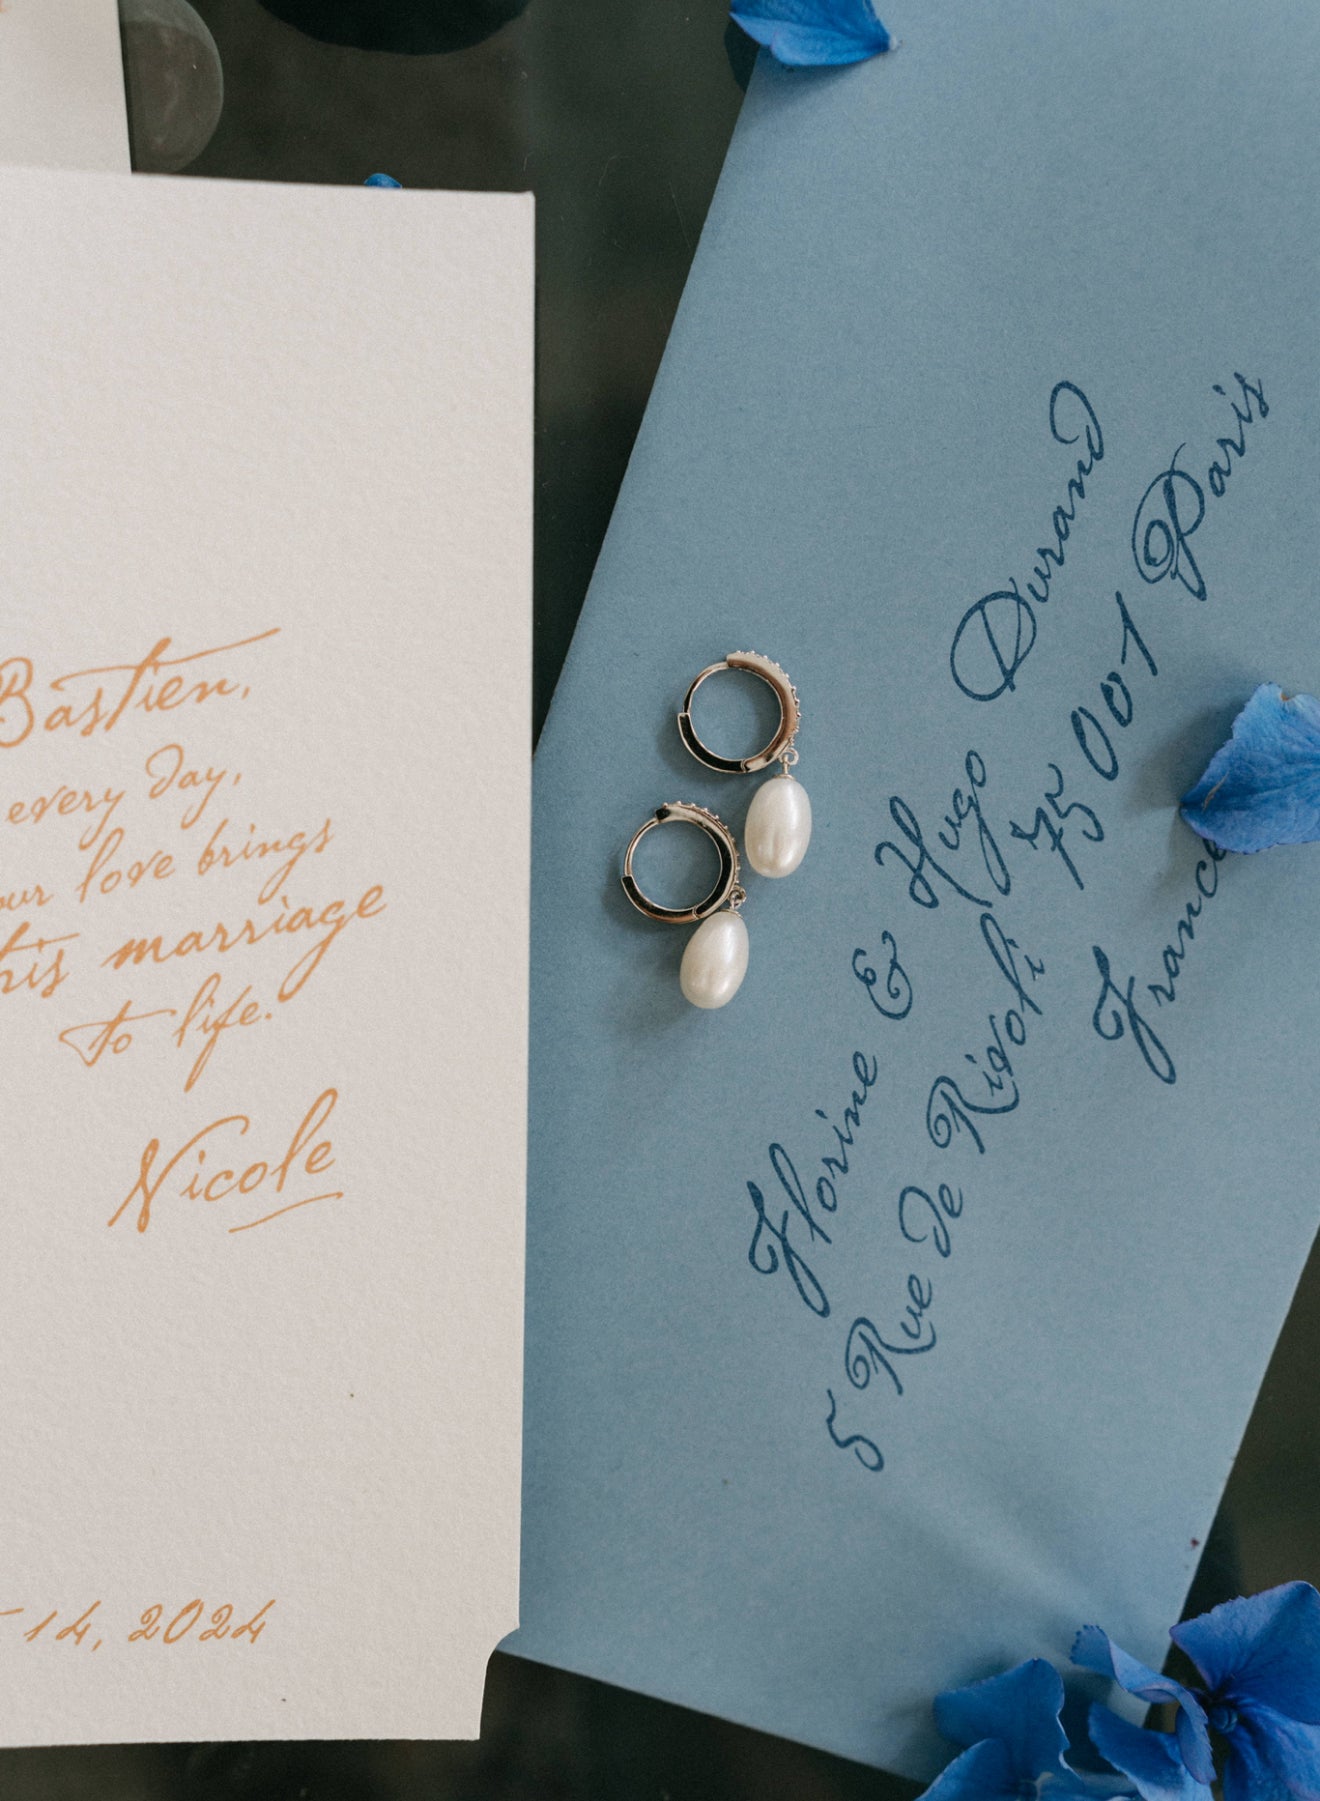 Bastien,
every day,
our love brings
his marriage
to life.
Nicole
14, 2024
Florine & Hugo Durand
5 Rue de Rivoli 75 001 Paris
France